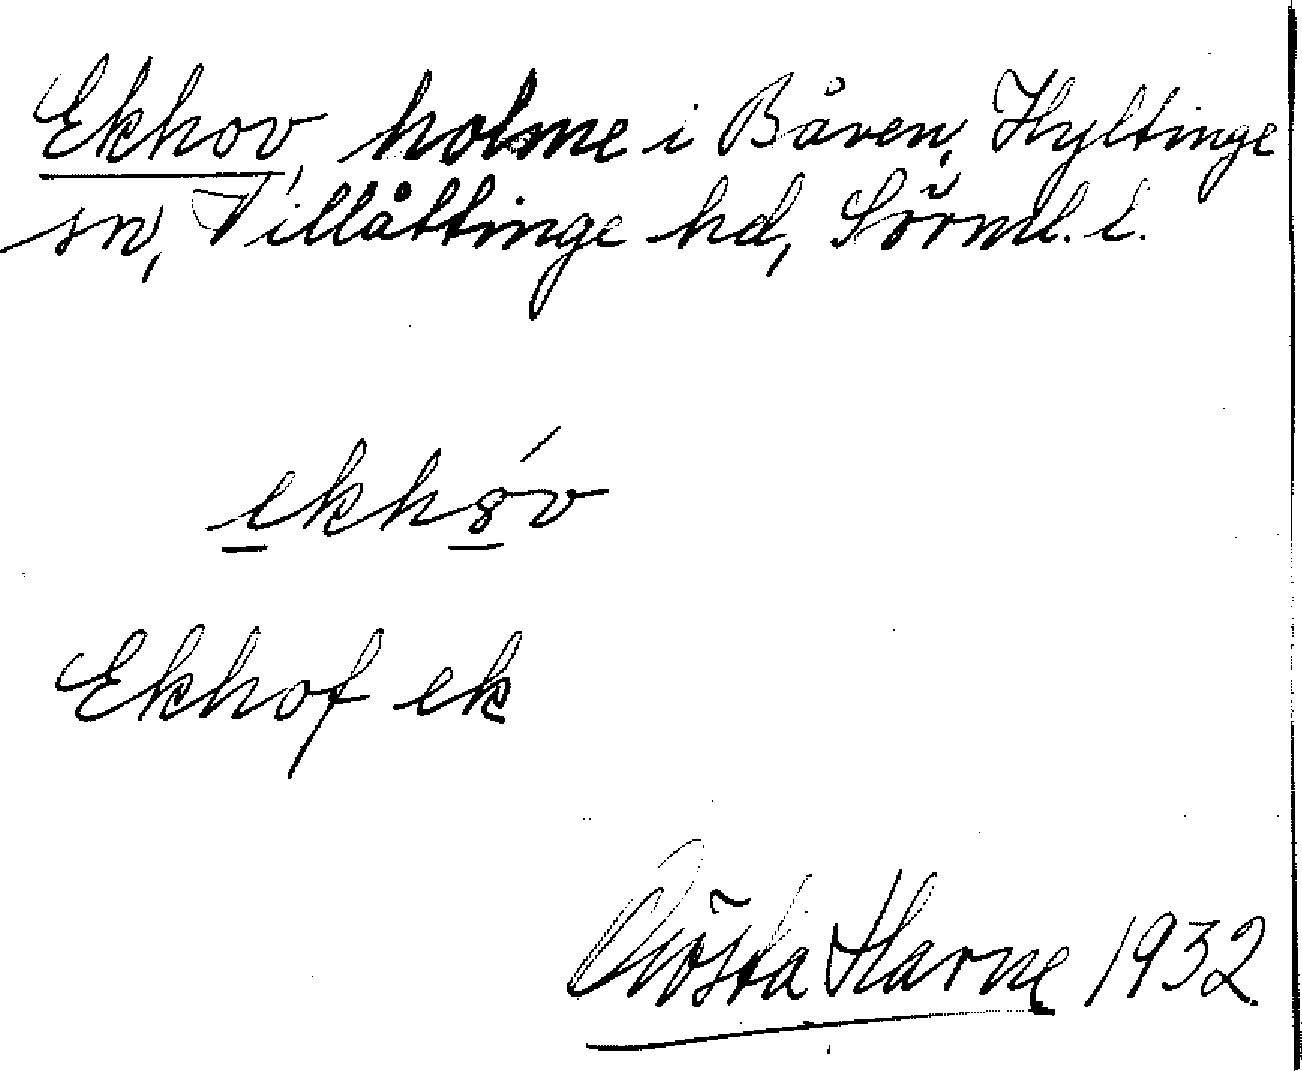 Ekhov, holme i Båven, Hyltinge
sn, Villåttinge hd, Sörml. l.
ekhǿv
Ekhof ek
Gösta Harne 1932